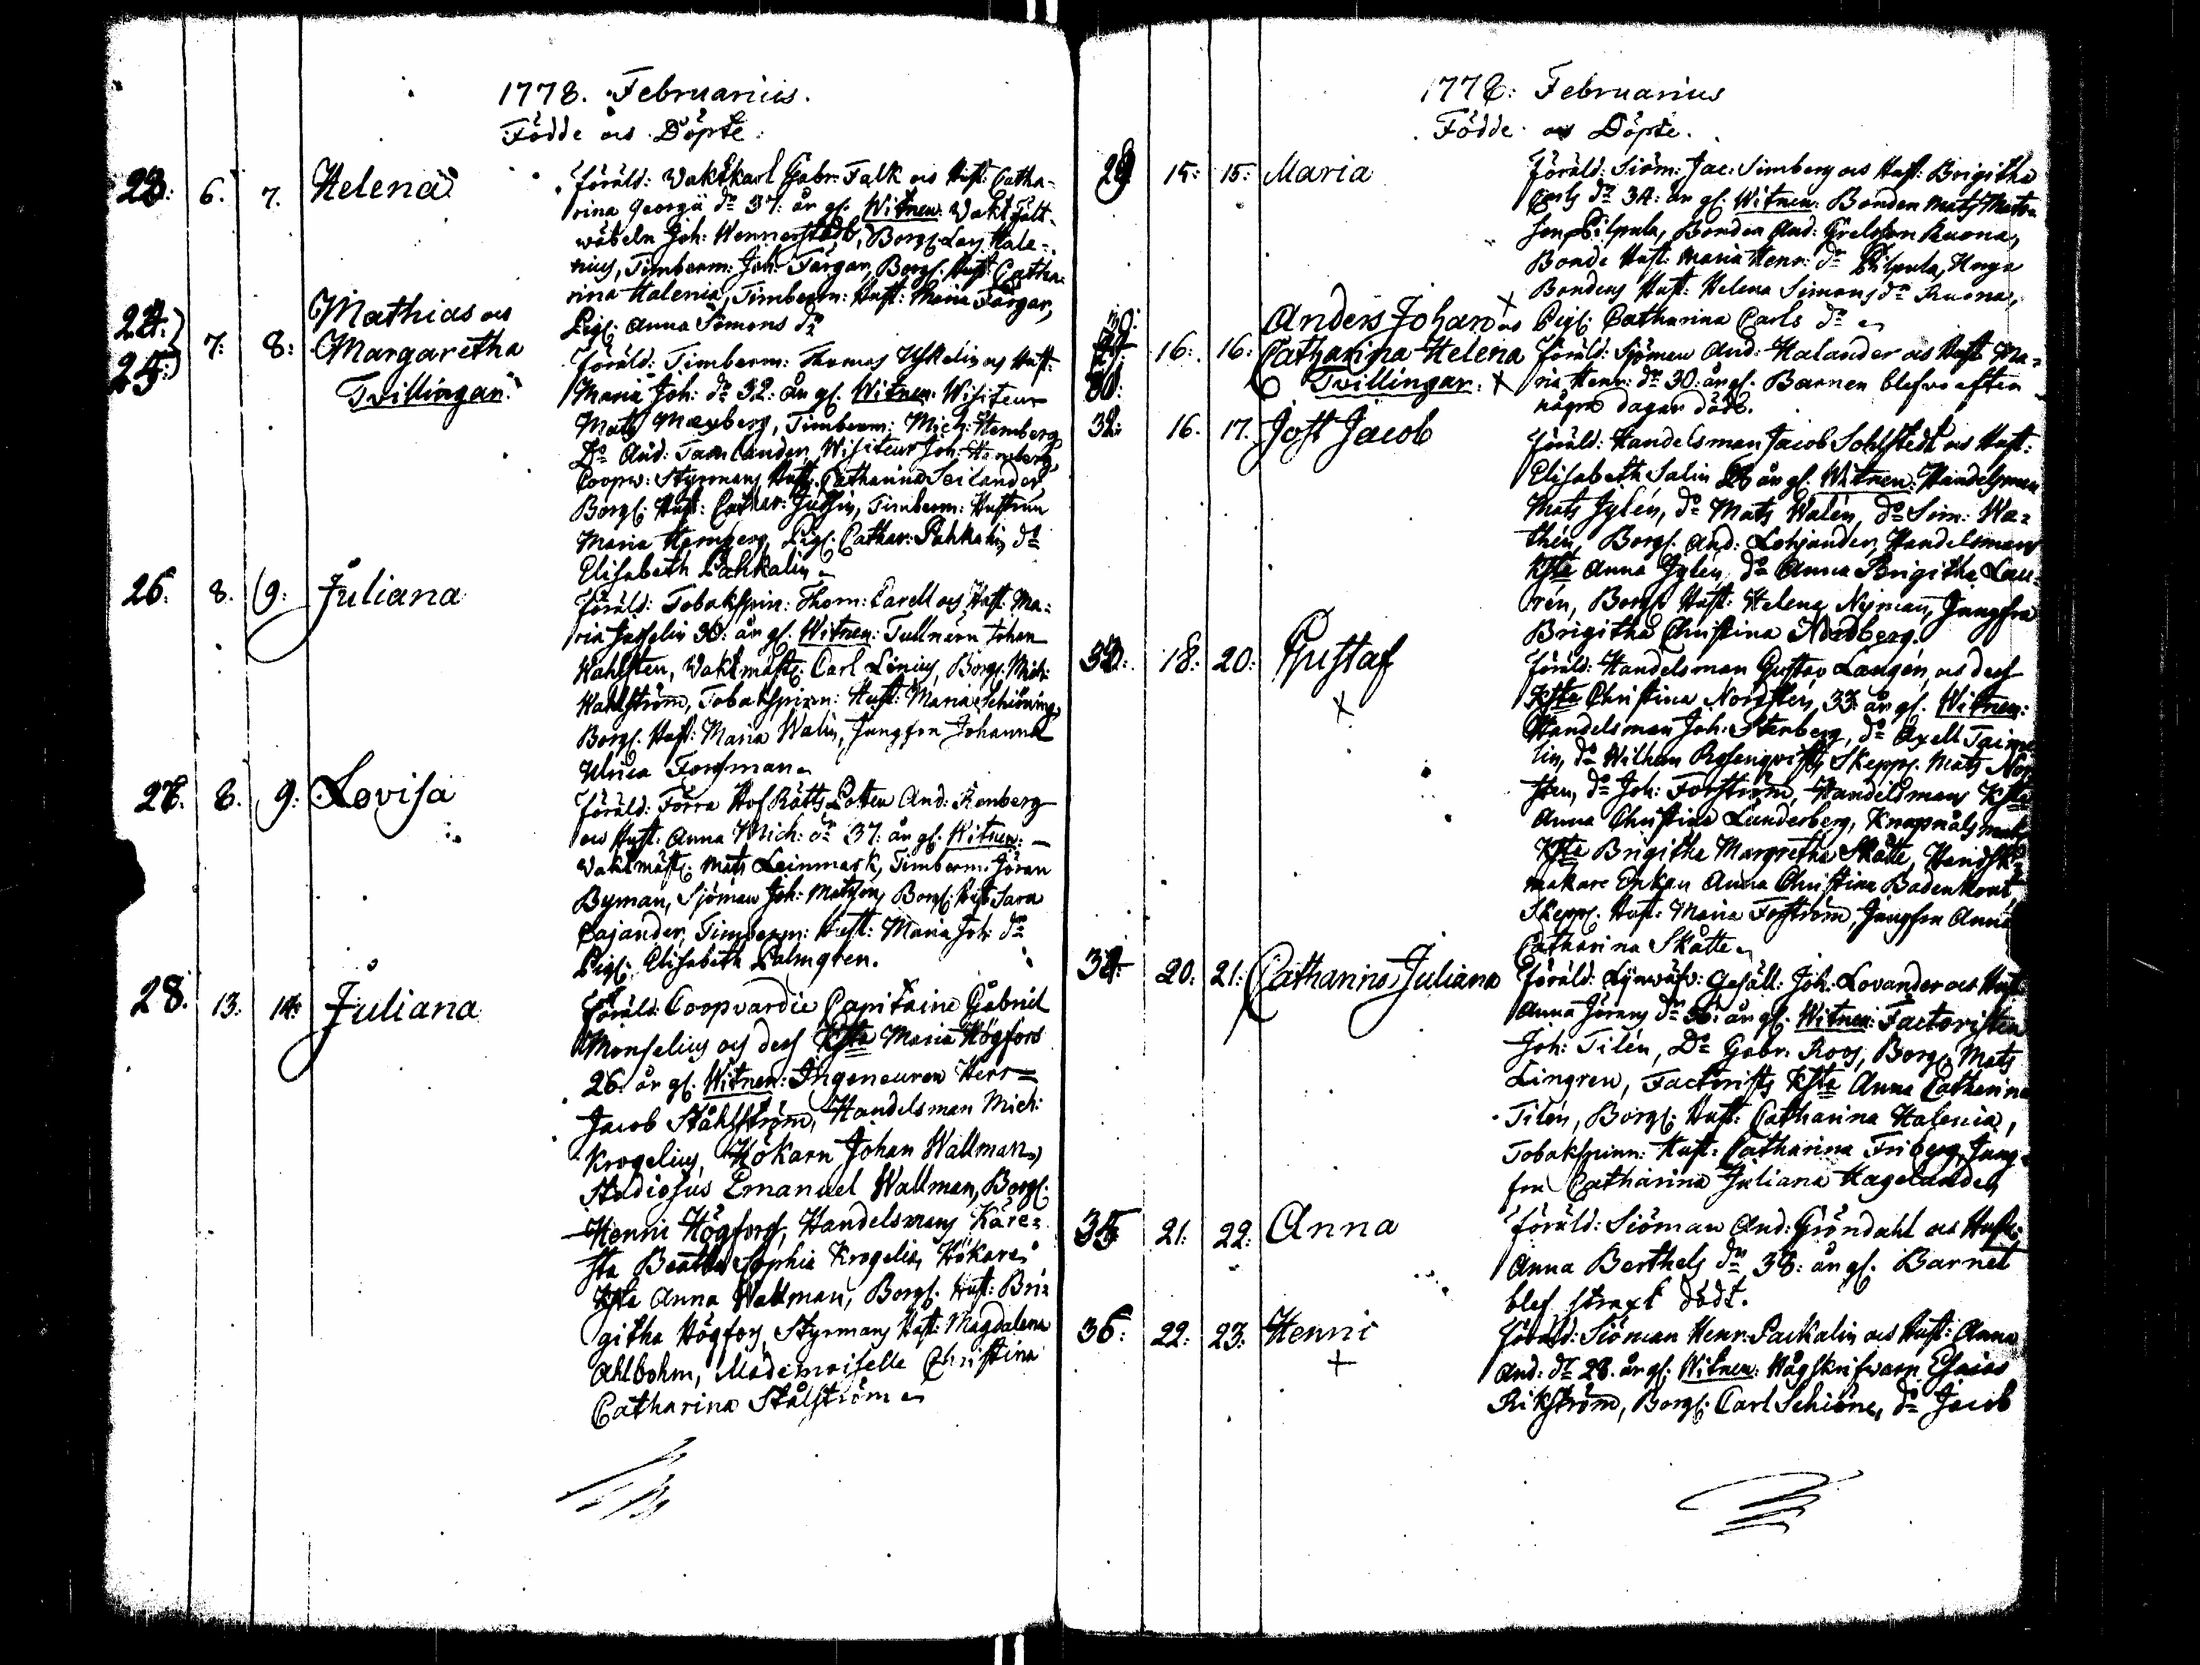 1778. Februarius.
Födde och Döpte.
23. 6. 7. Helena
Föräld: Vaktkarl Gabr: Falk och Hust: Catha-
rina Georgii dr 37: år gl: Witnen: Vakt fält-
wäbeln Joh: Wennerstedt, Borgs: Lars Hale-
nius, Timberm: Joh: Färgar, Borgs: Hust: Catha-
rina Halenia, Timberm: Hust: Maria Färgar,
Pig: Anna Simons dr
24. 25. 7. 8. Mathias och
Margaretha
Tvillingar.
Föräld: Timberm: Thomas och Hust:
Maria Joh: dr 32: år gl: Witnen: Visiteur
Mats Mexberg, Timberm: Mich: Hemberg
Do And: Tavlander, Visiteur Joh:
Coopv: Styrmans Hust: Catharina Seilander
Borgs: Hust: Cathar: Timberm: Hustrun
Maria Hernberg, Pig: Cathar: Pahkalin, do
Elisabeth Pahkalin
26. 8. 9. Juliana
Föräld: Tobakspin: Thom: Carell och Hust: Ma-
ria 30: år gl: Witnen: Tullnärn Johan
Wahlsten, Vaktmäst: Carl Linius, Borgs: Mich:
Wahlström, Tobakspinn: Hust: Maria Schiöning,
Borgs: Hust: Maria Walin, Jungfru Johanna
Ulrica Forsman
27. 8. 9. Lovisa
Föräld: Förra Hof Rätts And: Renberg
och Hust: Anna Mich: dr 37: år gl: Witnen: —
Vaktmäst: Mats Leinmark, Timberm: Jöran
Byman, Sjöman Joh: Matsson, Borgs: Hust: Sara
Cajander, Timberm: Hust: Maria Joh: dr
Pig: Elisabeth Palmgren.
28. 13. 14. Juliana
Föräld: Coopvardie Capitaine Gabriel
Monselius och dess Kjsta Maria Högfors
26. år gl: Witnen: Ingeneuren Herr
Jacob Ståhlström, Handelsman Mich:
Krogelius, Hökarn Johan Wallman,
Studiosus Emanuel Wallman, Borgs:
Henric Högfors, Handelsmans Käre-
sta Beatha Sophia Krogelia, Hökare
Kjsta Anna Wallman, Borgs: Hust: Bri-
githa Högfors, Styrmans Hust: Magdalena
Ahlbohm, Mademoiselle Christina
Catharina Stålström
1778: Februarius
Födde och Döpte.
29 15: 15: Maria
Föräld: Siöm: Jac: Simberg och Hust: Brigitha
Carls dr 34: år gl: Witnen: Bonden Mats Mats-
son Pilpula, Bonden And: Grelsson Ruona,
Bonde Hust: Maria Henr: dr Pilpula, Unga
Bondens Hust: Helena Simons dr Ruona,
Pig: Catharina Carls dr
30. 16: 16: Anders Johan och
Catharina Helena
Tvillingar. X
Föräld: Sjöman And: Halander och Hust: Ma-
ria Henr: dr 30: år gl: Barnen blefvo efter
några dagar död.
32: 16. 17. Jost Jacob
Föräld: Handelsman Jacob Sohlstedt och Hust:
Elisabeth Salin 26 år gl: Witnen: Handelsman
Mats Jylén, do Mats Walén, do Sim: Wa-
thén, Borgs: And: Lohjander, Handelsmans
Kjsta Anna Jylén, do Anna Brigitha Lau-
rén, Borgs: Hust: Helena Nyman, Jungfru
Brigitha Christina Nordberg.
33: 18: 20: Gustaf
X
Föräld: Handelsman Gustav Langén, och dess
Kjsta Christina Nordsten, 33: år gl: Witnen:
Handelsman Joh: Stenberg, do Axell
lin, do Wilhem Rosenqvist, Skepps: Mats Nor-
sten, do Joh: Forström, Handelsmans Kjsta
Anna Christina Lunderberg, Knapnåls
Kjsta Brigitha Margretha Skatte, Handsk-
makare Enkan Anna Christina Badenhorst
Skepps: Hust: Maria Forström, Jungfru Anna
Catharina Skatte
34. 20: 21: Catharina Juliana
Föräld: Linväfv: Gesäll: Joh: Lovander och Hust
Anna Jörans dr 36: år gl: Witnen: Factoristen
Joh: Tilén, Do Gabr: Roos, Borgs: Mats
Lingren, Factorists Kjsta Anna Catharina
Tilén, Borgs: Hust: Catharina Halenia,
Tobakspinn: Hust: Catharina Friberg, Jung-
fru Catharina Juliana Hagelander
35 21: 22: Anna
Föräld: Siöman And: Gröndahl och Hust:
Anna Berthels dr 38: år gl: Barnet
blef straxt dödt.
36: 22: 23: Henric
X
Föräld: Siöman Henr: Packalin och Hust: Anna
And: dr 28. år gl: Witnen: Vågskrifvarn Esaias
Rikström, Borgs: Carl Schiöne, do Jacob